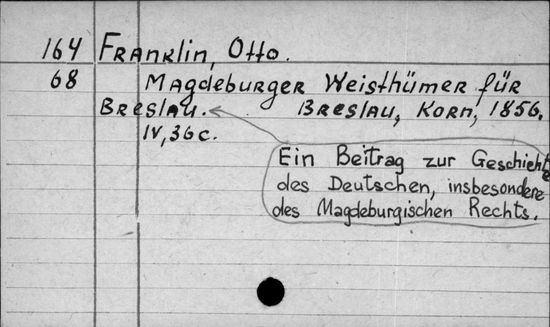 164 Franklin, Otto.
68 Magdeburger Weisthümer für
Breslau. Breslau, Korn, 1856.
IV, 36 c.
Ein Beitrag zur Geschichte
des Deutschen, insbesondere
des Magdeburgischen Rechts.